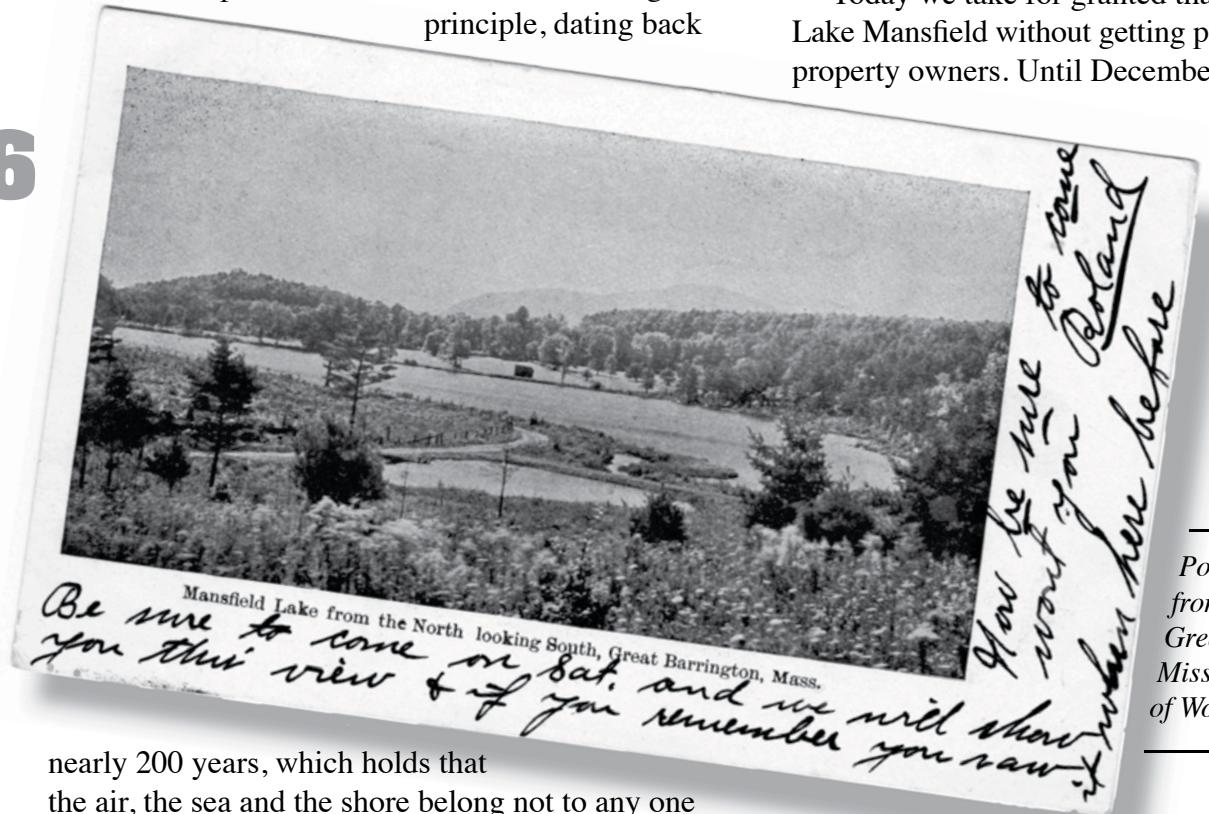 principle, dating back
Today we take for granted
Lake Mansfield without getting
property owners. Until
6
Mansfield Lake from the North looking South, Great Barrington, Mass.
Be sure to come on Sat. and we will show
you this view & if you remember you saw
it when here before
Now be sure to come
wont you Roland
of
nearly 200 years, which holds that
the air, the sea and the shore belong not to any one